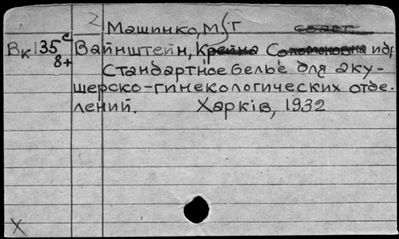 2 Машинко, М Г
Вк 135с Вайнштейн, Крейна Соломоновна и др
8+ Стандартное белье для аку-
шерско-гинекологических отде-
лений. Харків, 1932
X